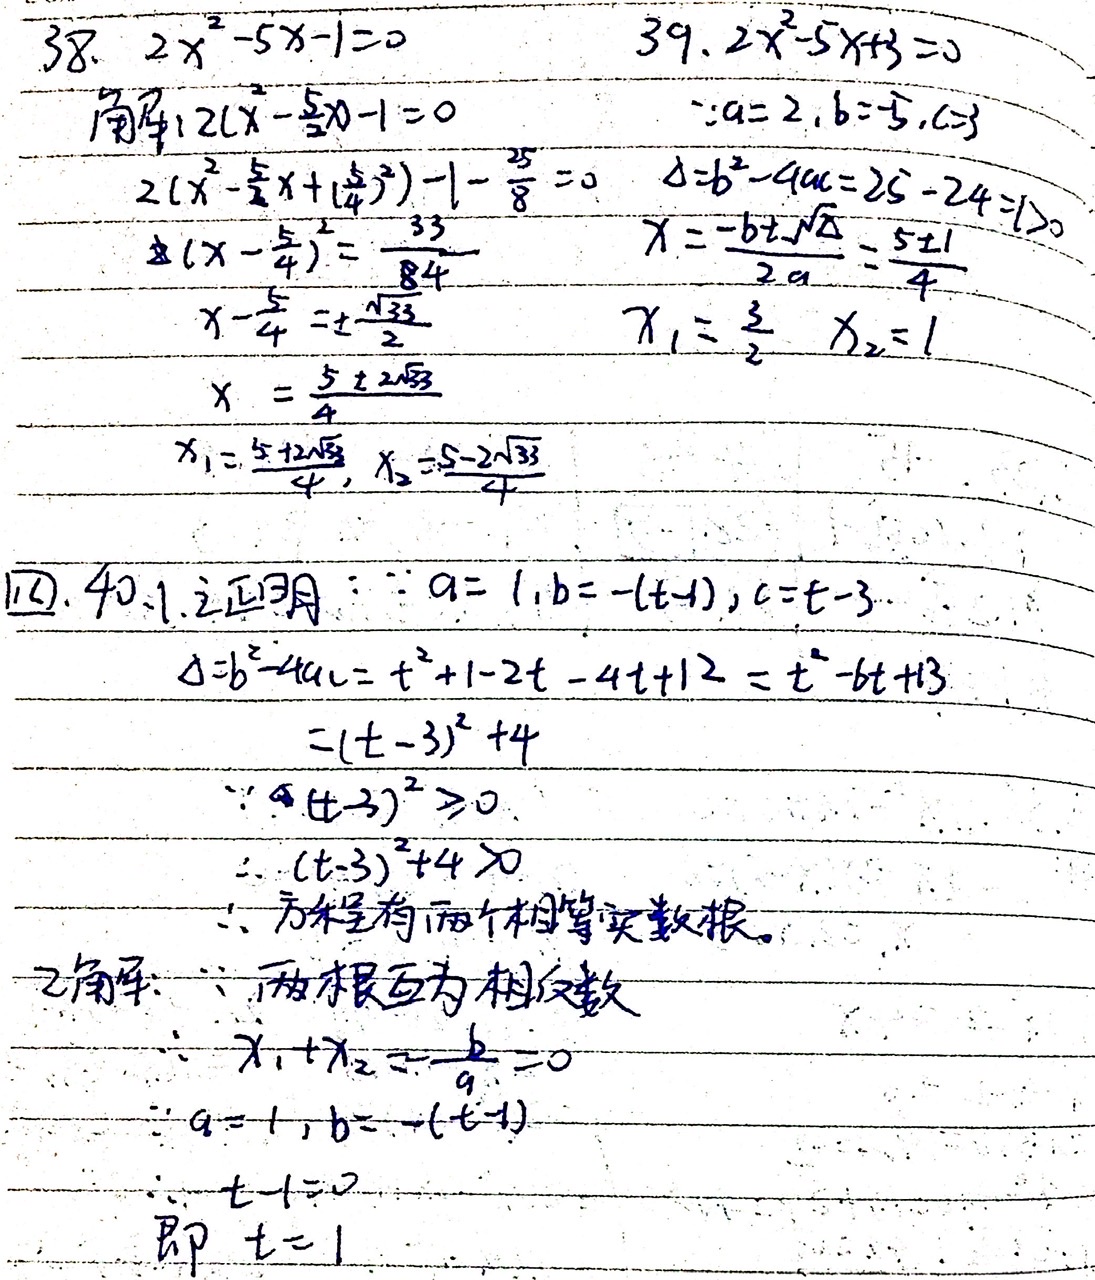 38. 2x²-5x-1=0
解: 2(x²-5/2x)-1=0
2(x²-5/2x+(5/4)²)-1-25/8=0
(x-5/4)²=33/84
x-5/4=±√33/2
x =5±2√33/4
x₁=5+2√33/4, x₂=5-2√33/4
39. 2x²-5x+3=0
∵a=2,b=-5,c=3
Δ=b²-4ac=25-24=1>0
x=-b±√Δ/2a=5±1/4
x₁=3/2 x₂=1
四. 40.1.证明: ∵a=1,b=-(t-1),c=t-3
Δ=b²-4ac=t²+1-2t-4t+12=t²-6t+13
=(t-3)²+4
∵(t-3)²≥0
∴(t-3)²+4>0
∴方程有两个相等实数根。
2解: ∵两根互为相反数
∴x₁+x₂=-b/a=0
∵a=1,b=-(t-1)
∴t-1=0
即 t=1